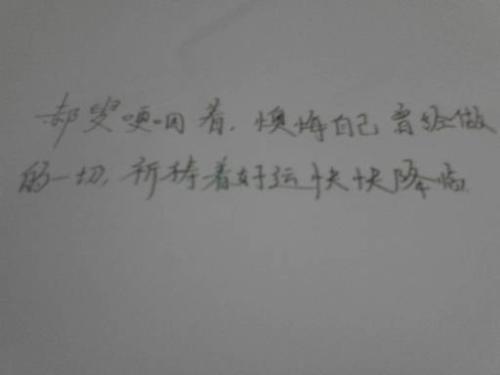 郝叟哽咽着，懊悔自己曾经做
的一切，祈祷着好运快快降临